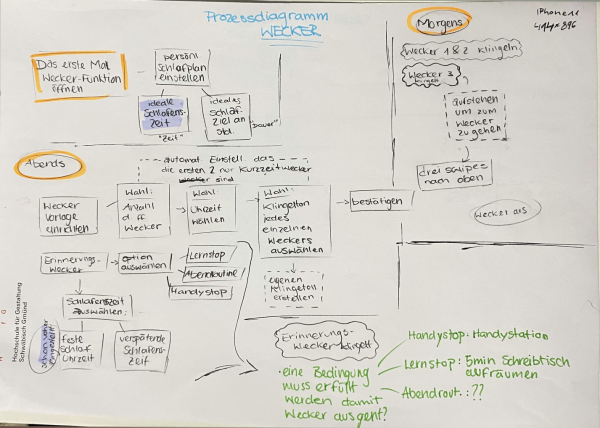 Prozessdiagramm
WECKER
iPhone11
414×896
Das erste Mal
Wecker-Funktion
öffnen
persönl.
Schlafplan
einstellen
ideale
Schlafens-
Zeit
"Zeit"
ideales
Schlaf
Ziel an
Std.
"Dauer"
Morgens
Wecker 1 & 2 klingeln
Wecker 3
klingelt
aufstehen
um zum
Wecker
zu gehen
drei swipes
nach oben
Wecker aus
Abends
automat Einstell. das
die ersten 2 nur Kurzzeitwecker
wecker sind
Wecker
Vorlage
einrichten
Wahl:
Anzahl
d. ff
Wecker
Wahl
Uhrzeit
wählen
Wahl:
Klingelton
jedes
einzelnen
Weckers
auswählen
bestätigen
eigenen
Klingelton
erstellen
Erinnerungs-
wecker
Option
auswählen
Lernstop
Abendroutine
Handystop
Schlafenszeit
auswählen:
schon vorher
eingestellt
feste
Schlaf
Uhrzeit
verspätende
Schlafens-
zeit
Erinnerungs-
Wecker klingelt
• eine Bedingung
muss erfüllt
werden damit
Wecker ausgeht?
Handystop: Handystation
Lernstop: 5min Schreibtisch
aufräumen
Abendrout.: ??
Hochschule für Gestaltung
Schwäbisch Gmünd